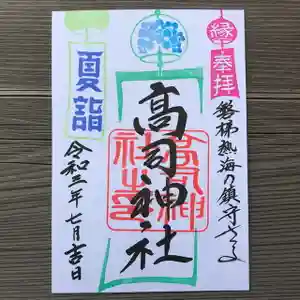 縁
奉拝
磐梯熱海の鎮守さま
高司神社
夏詣
令和三年七月吉日